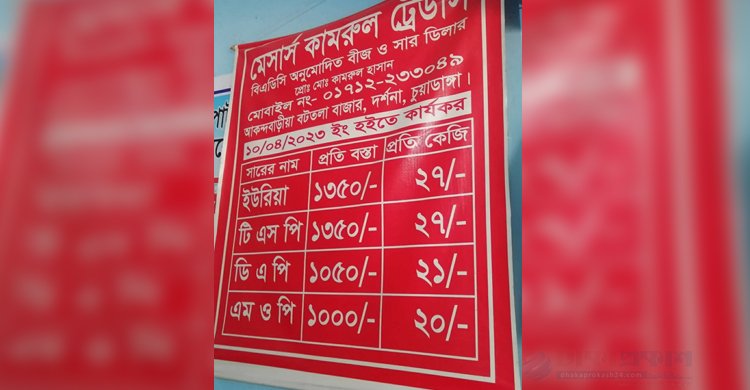 মেসার্স কামরুল ট্রেডার্স
বিএডিসি অনুমোদিত বীজ ও সার ডিলার
প্রোঃ মোঃ কামরুল হাসান
মোবাইল নং- ০১৭১২-২৩৩০৪৯
আকন্দবাড়ীয়া বটতলা বাজার, দর্শনা, চুয়াডাঙ্গা।
১০/০৪/২০২৩ ইং হইতে কার্যকর
সারের নাম প্রতি বস্তা প্রতি কেজি
ইউরিয়া ১৩৫০/- ২৭/-
টি এস পি ১৩৫০/- ২৭/-
ডি এ পি ১০৫০/- ২১/-
এম ও পি ১০০০/- ২০/-
dhakaprokash24.com